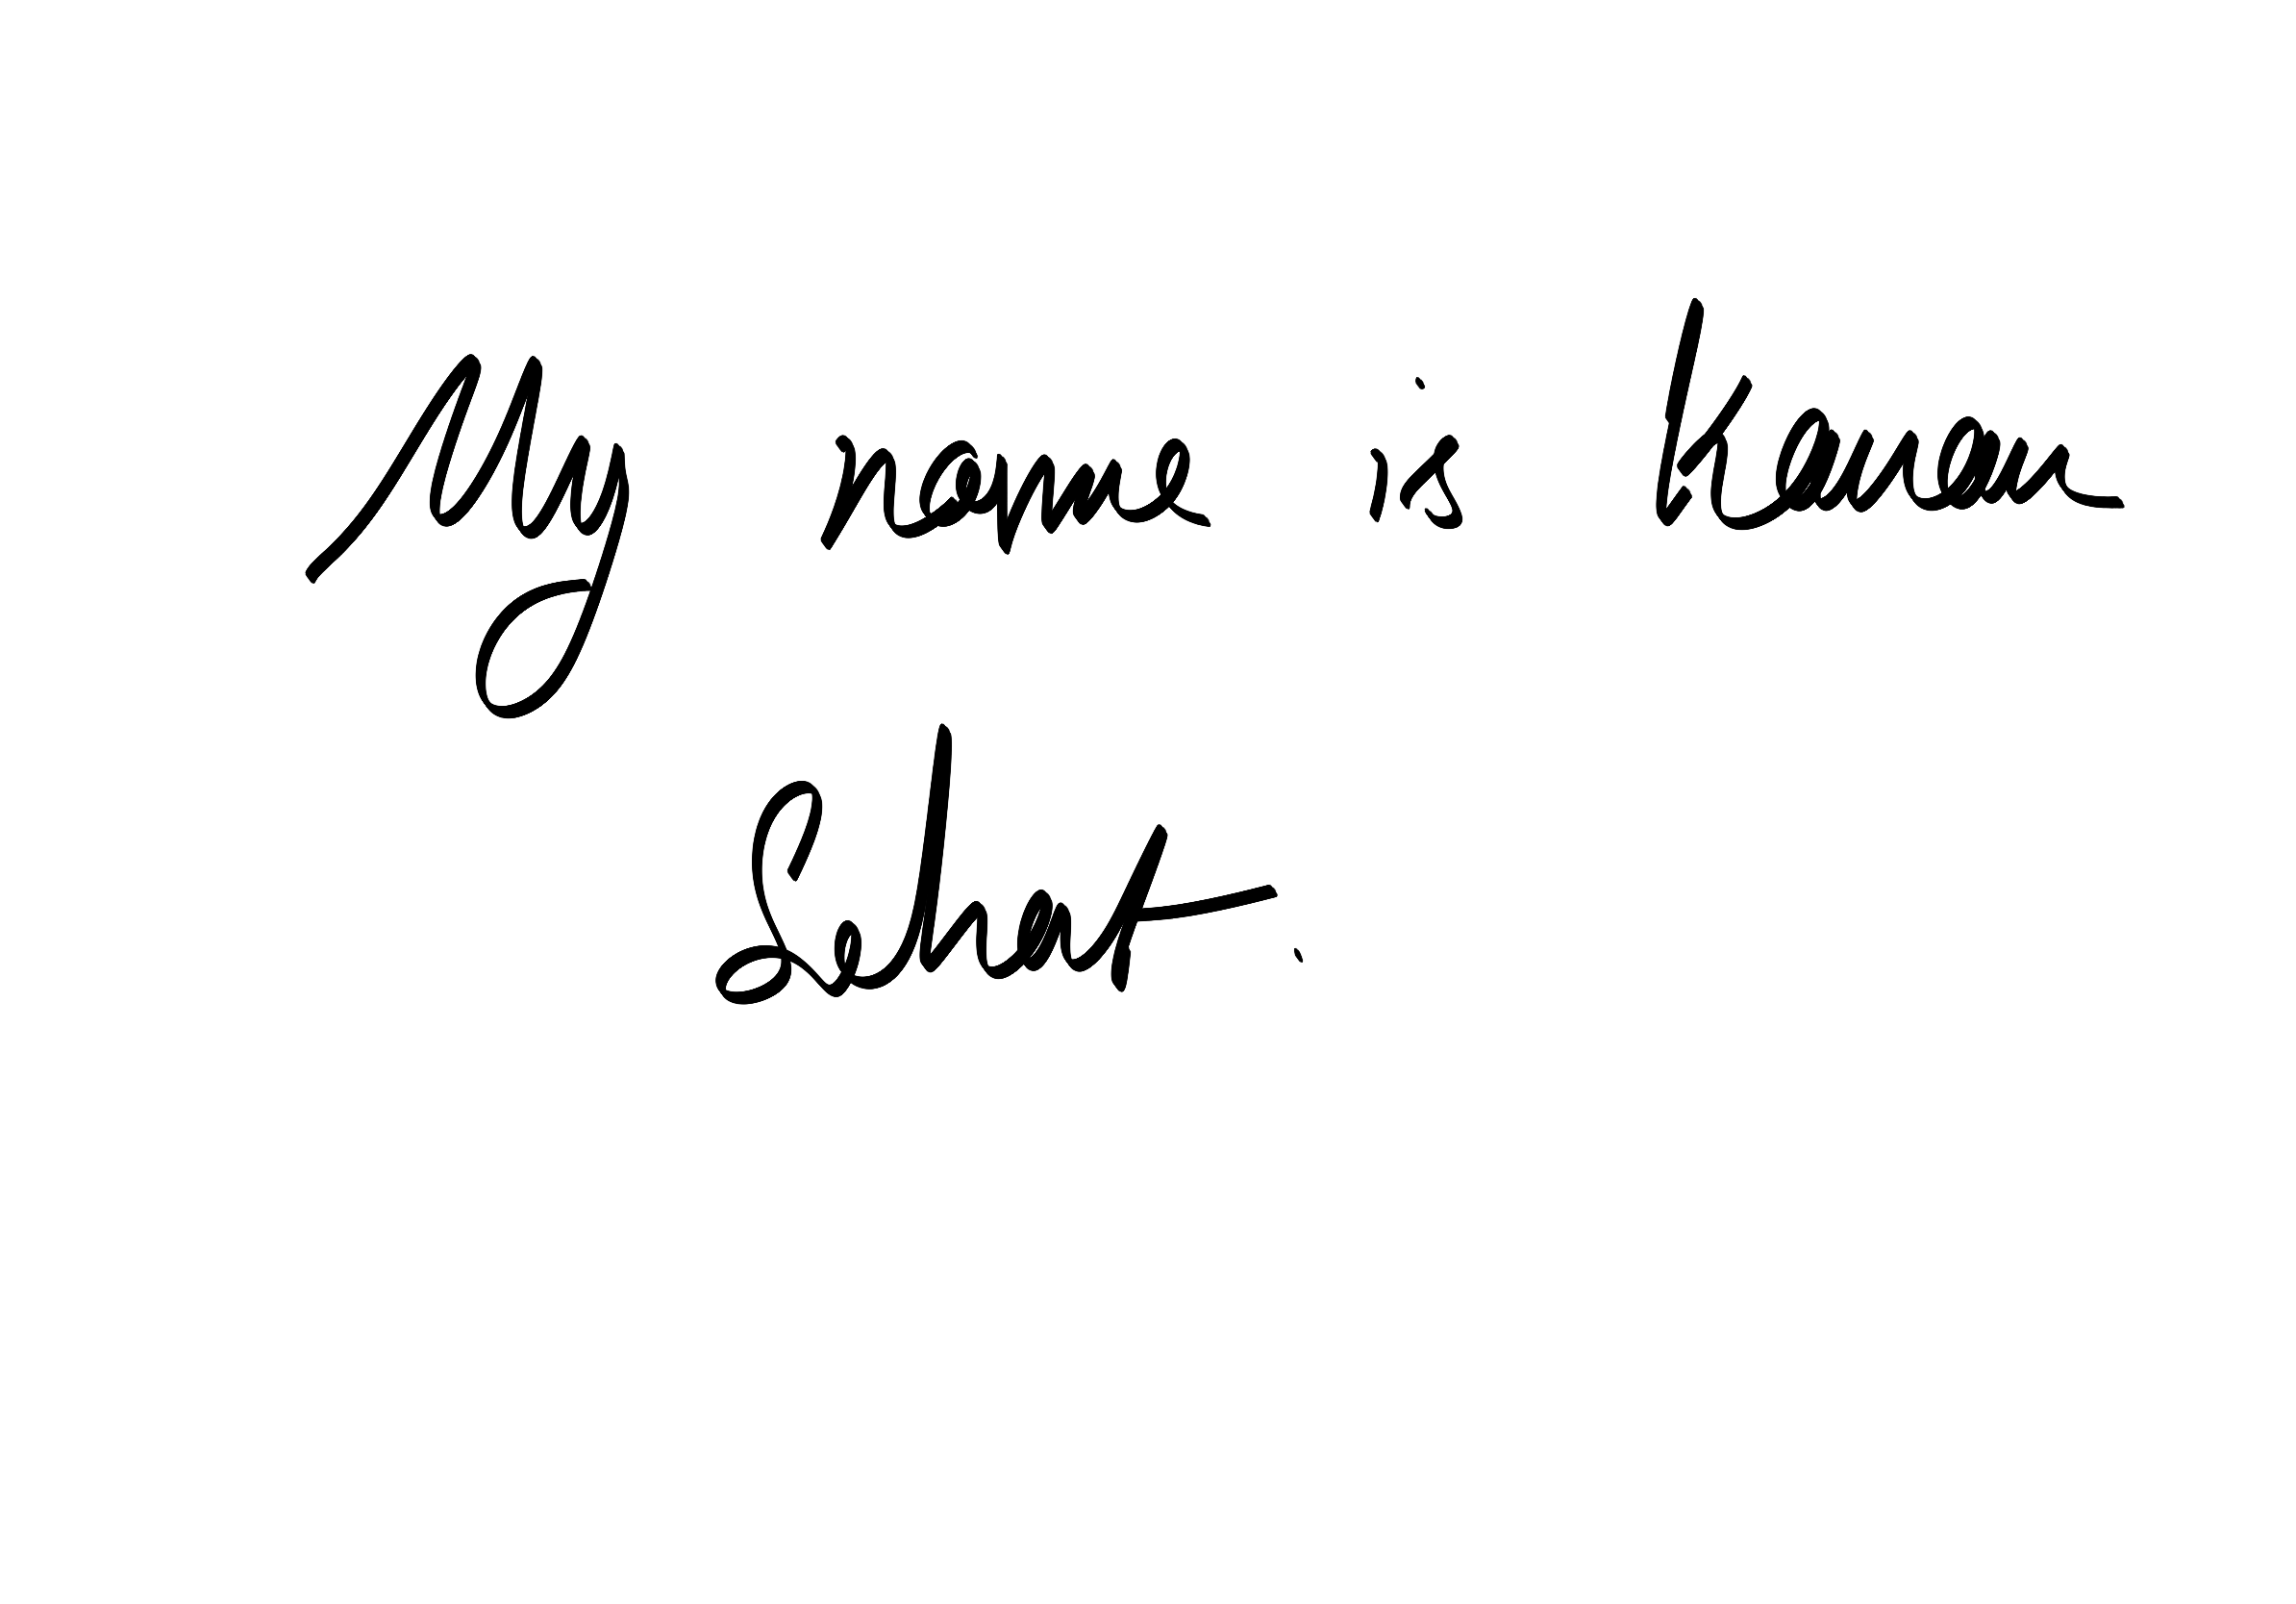 My name is Kanan
Sehrat.